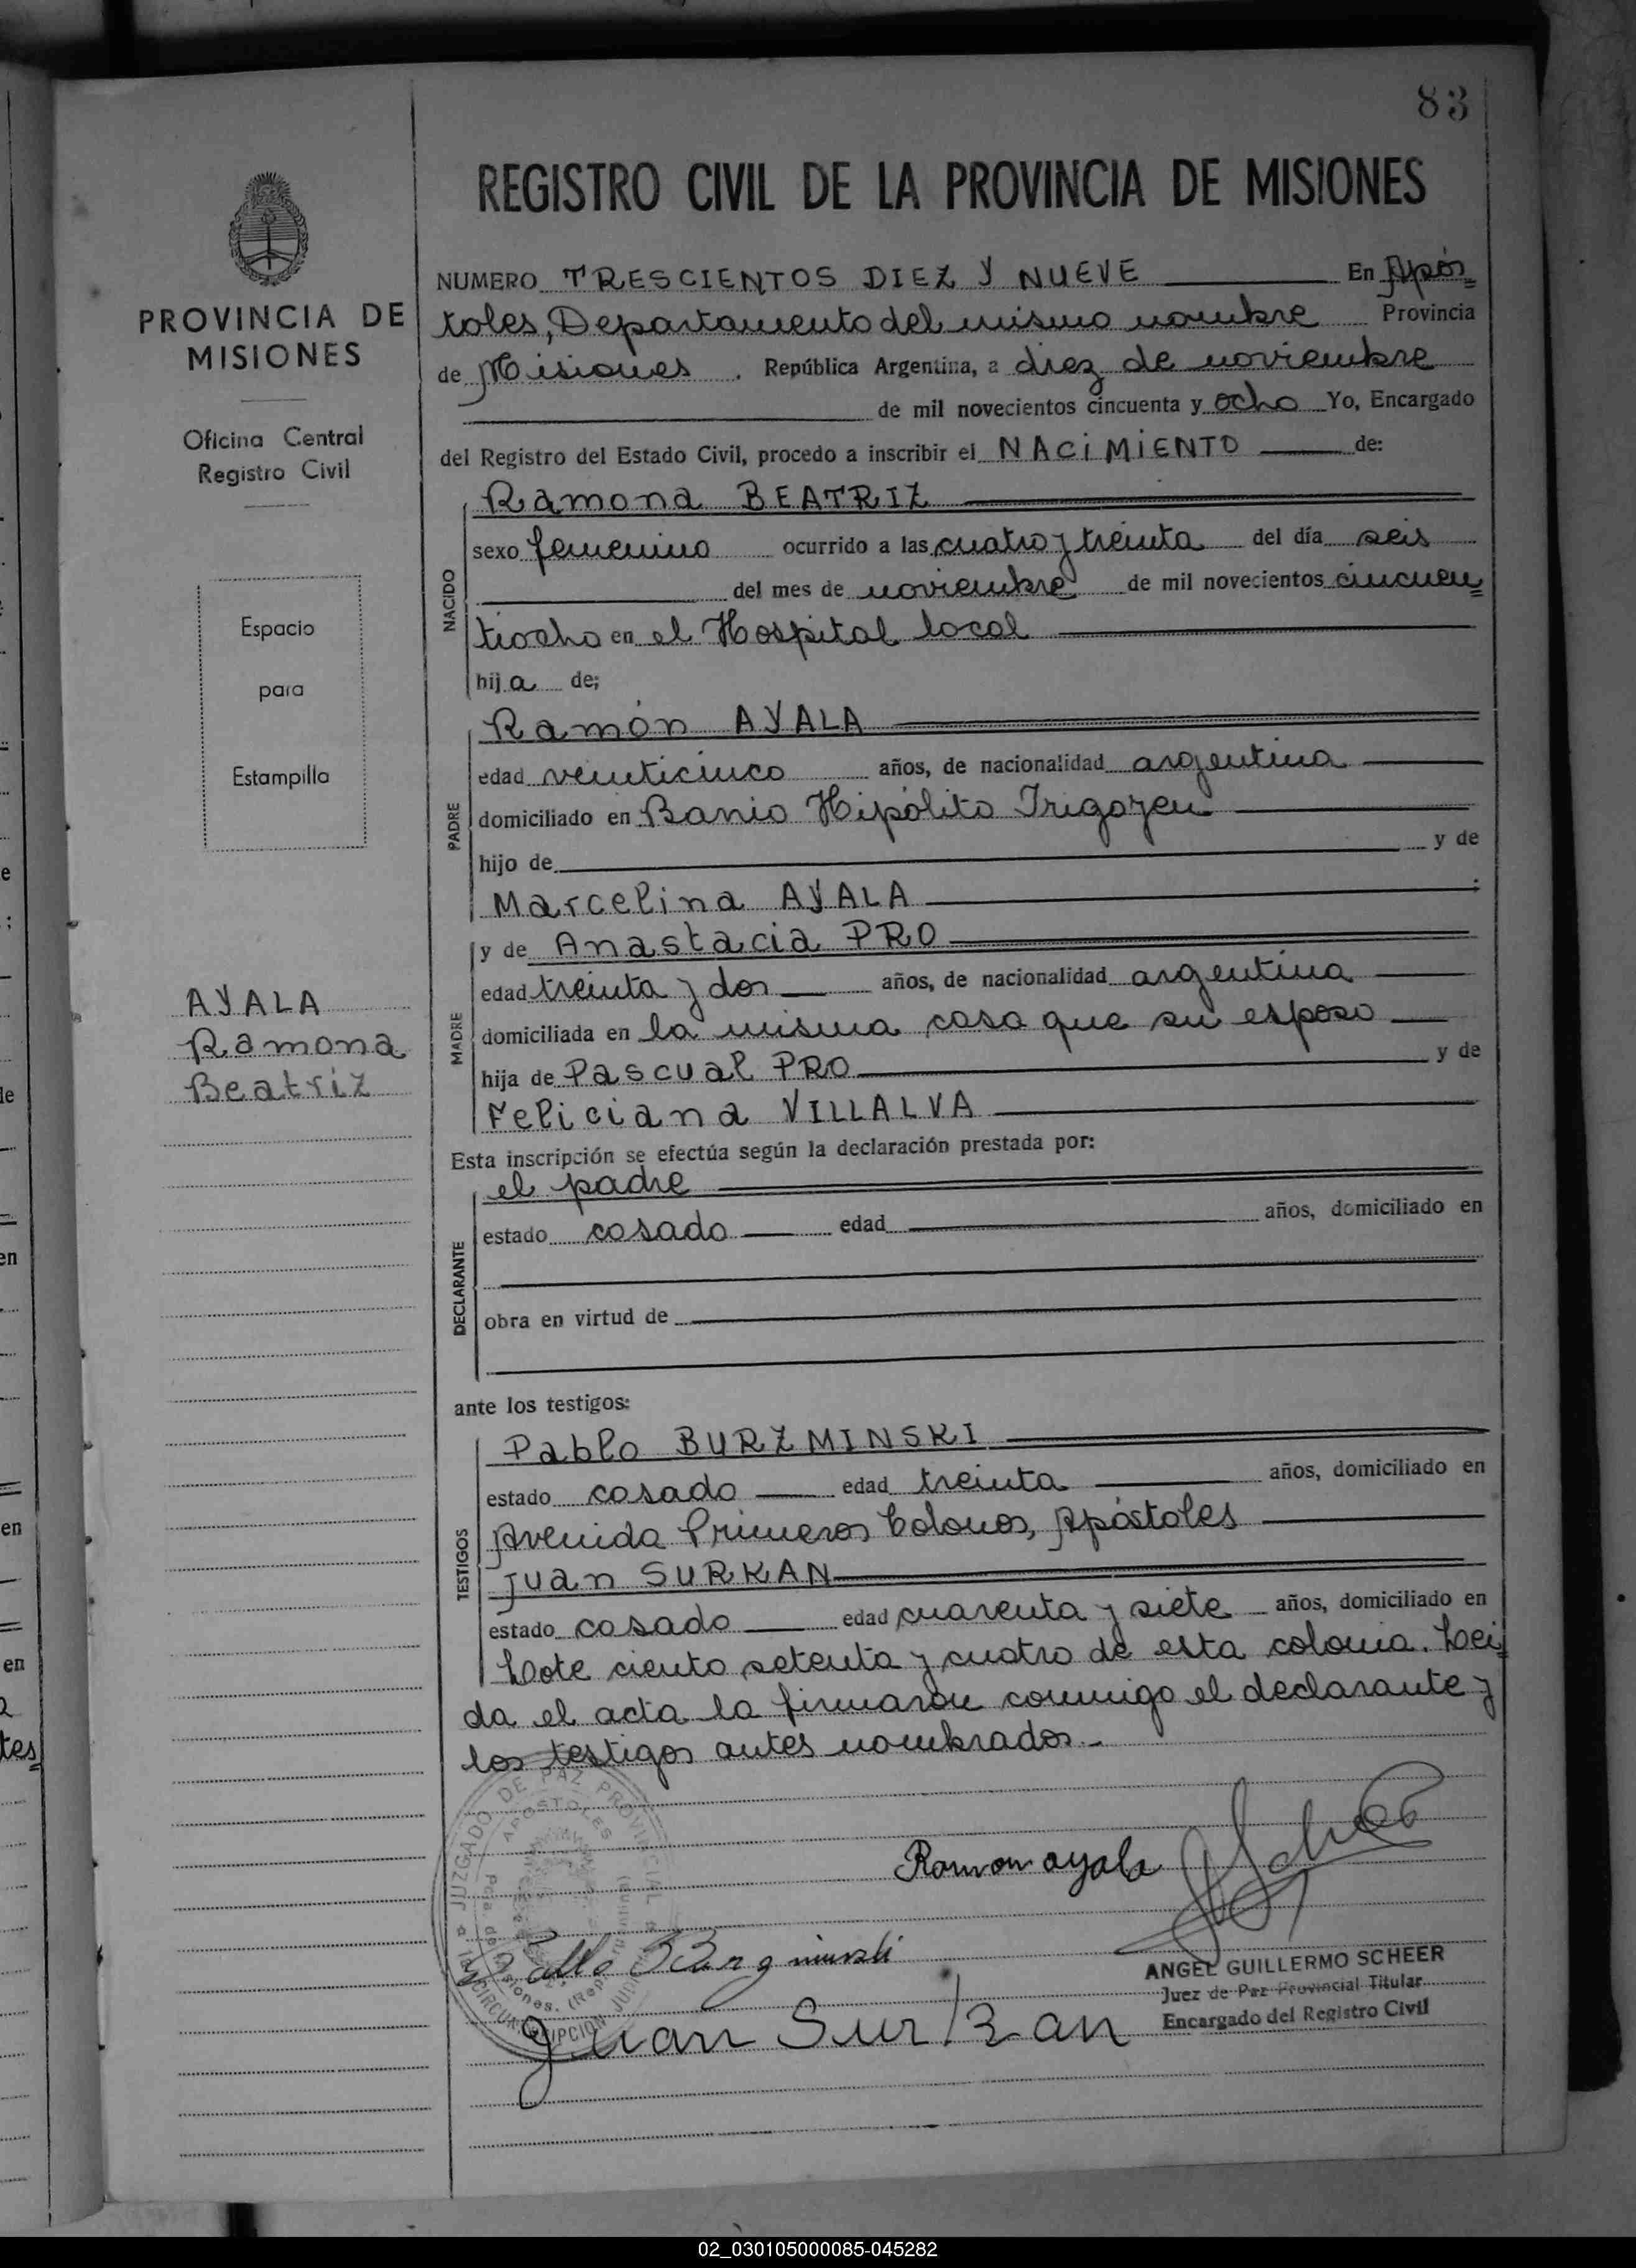 83
REGISTRO CIVIL DE LA PROVINCIA DE MISIONES
PROVINCIA DE
MISIONES
Oficina Central
Registro Civil
Espacio
para
Estampilla
AYALA
Ramona
Beatriz
NUMERO TRESCIENTOS DIEZ Y NUEVE En Após
toles, Departamento del mismo nombre Provincia
de Misiones . República Argentina, a diez de noviembre
de mil novecientos cincuenta y ocho Yo, Encargado
del Registro del Estado Civil, procedo a inscribir el NACIMIENTO de:
NACIDO
Ramona BEATRIZ
sexo femenino ocurrido a las cuatro y treinta del día seis
del mes de noviembre de mil novecientos cincuen
tiocho en el Hospital local
hija de;
PADRE
Ramón AYALA
edad veinticinco años, de nacionalidad argentina
domiciliado en Barrio Hipólito Irigoyen
hijo de y de
Marcelina AYALA ;
MADRE
y de Anastacia PRO
edad treinta y dos años, de nacionalidad argentina
domiciliada en la misma casa que su esposo
hija de Pascual PRO y de
Feliciana VILLALVA
Esta inscripción se efectúa según la declaración prestada por:
DECLARANTE
el padre
estado casado edad años, domiciliado en
obra en virtud de
ante los testigos:
TESTIGOS
Pablo BURZMINSKI
estado casado edad treinta años, domiciliado en
Avenida Primeros Colonos, Apóstoles
Juan SURKAN
estado casado edad cuarenta y siete años, domiciliado en
Lote ciento setenta y cuatro de esta colonia. Lei
da el acta la firmaron conmigo el declarante y
los testigos antes nombrados.-
JUZGADO DE PAZ PROVINCIAL
APOSTOLES
Ramon ayala
Juan Surkan
ANGEL GUILLERMO SCHEER
Juez de Paz Provincial Titular
Encargado del Registro Civil
02_030105000085-045282